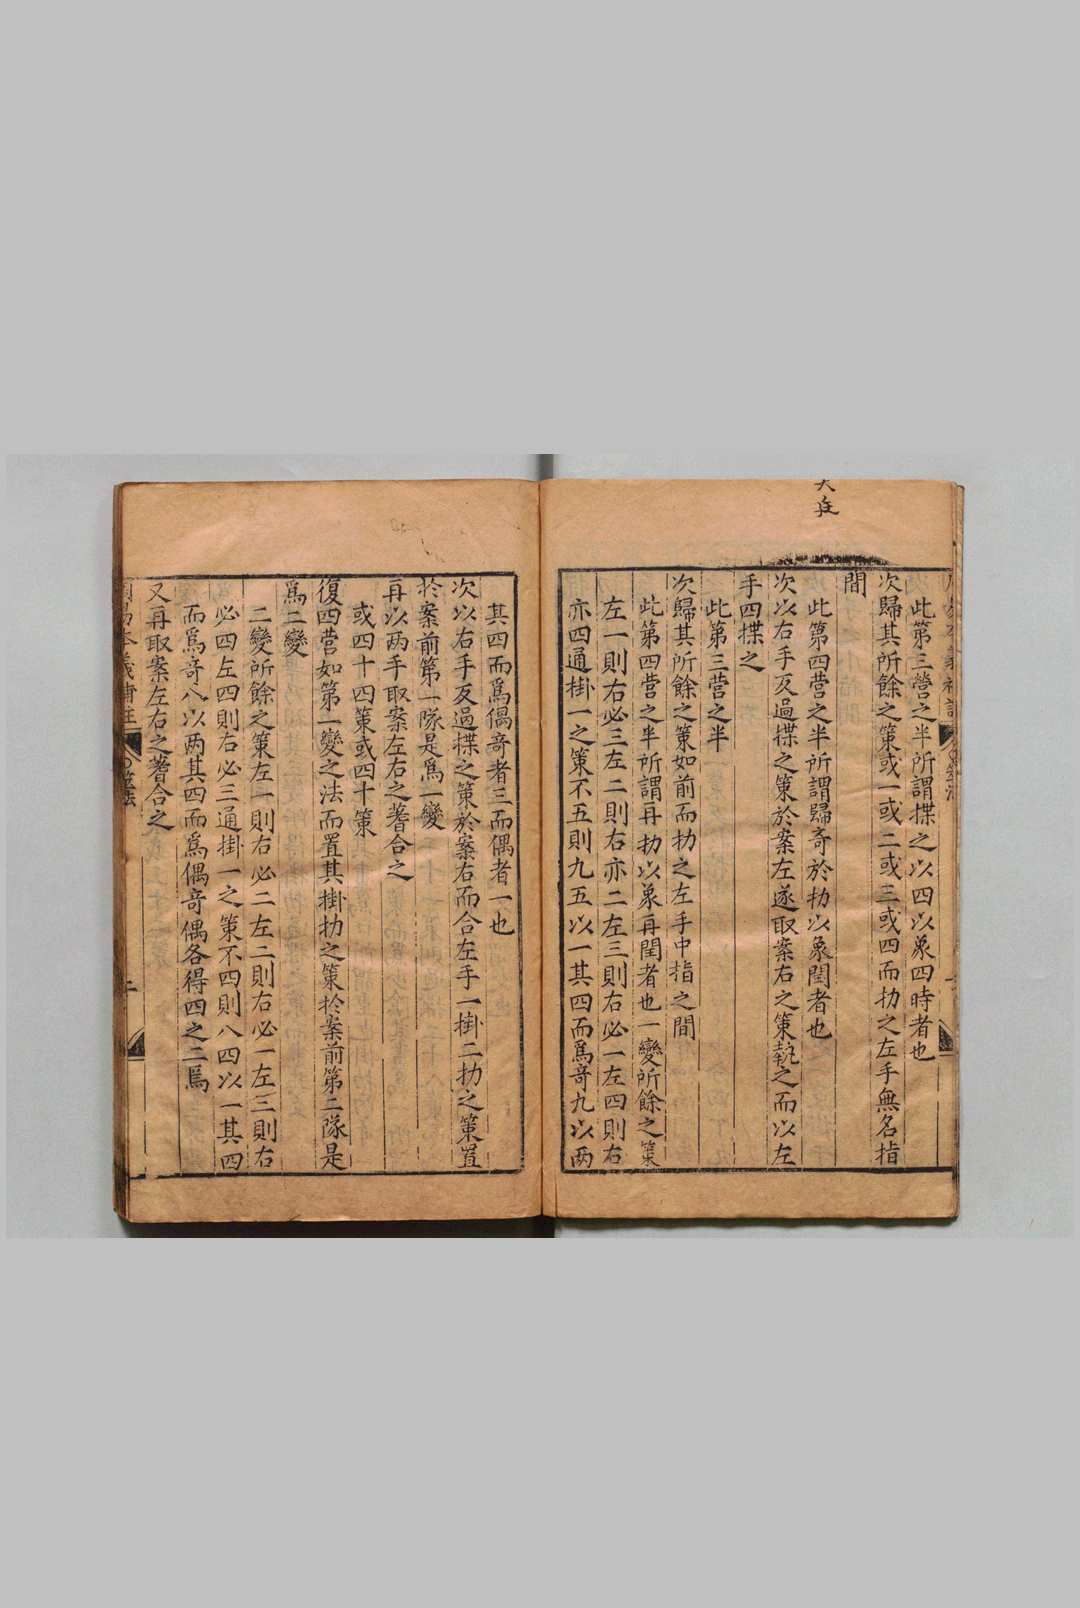 此第三營之半所謂揲之以四以象四時者也
次歸其所餘之策或一或二或三或四而扐之左手無名指
間
此第四營之半所謂歸奇於扐以象閏者也
次以右手反過揲之策於案左遂取案右之策執之而以左
手四揲之
此第三營之半
次歸其所餘之策如前而扐之左手中指之間
此第四營之半所謂再扐以象再閏者也一變所餘之策
左一則右必三左二則右亦二左三則右必一左四則右
亦四通掛一之策不五則九五以一其四而爲奇九以两
其四而爲偶奇者三而偶者一也
次以右手反過揲之策於案右而合左手一掛二扐之策置
於案前第一隊是爲一變
再以两手取案左右之蓍合之
或四十四策或四十策
復四營如第一變之法而置其掛扐之策於案前第二隊是
爲二變
二變所餘之策左一則右必二左二則右必一左三則右
必四左四則右必三通掛一之策不四則八四以一其四
而爲奇八以两其四而爲偶奇偶各得四之二焉
又再取案左右之蓍合之
周易本義補註
筮法